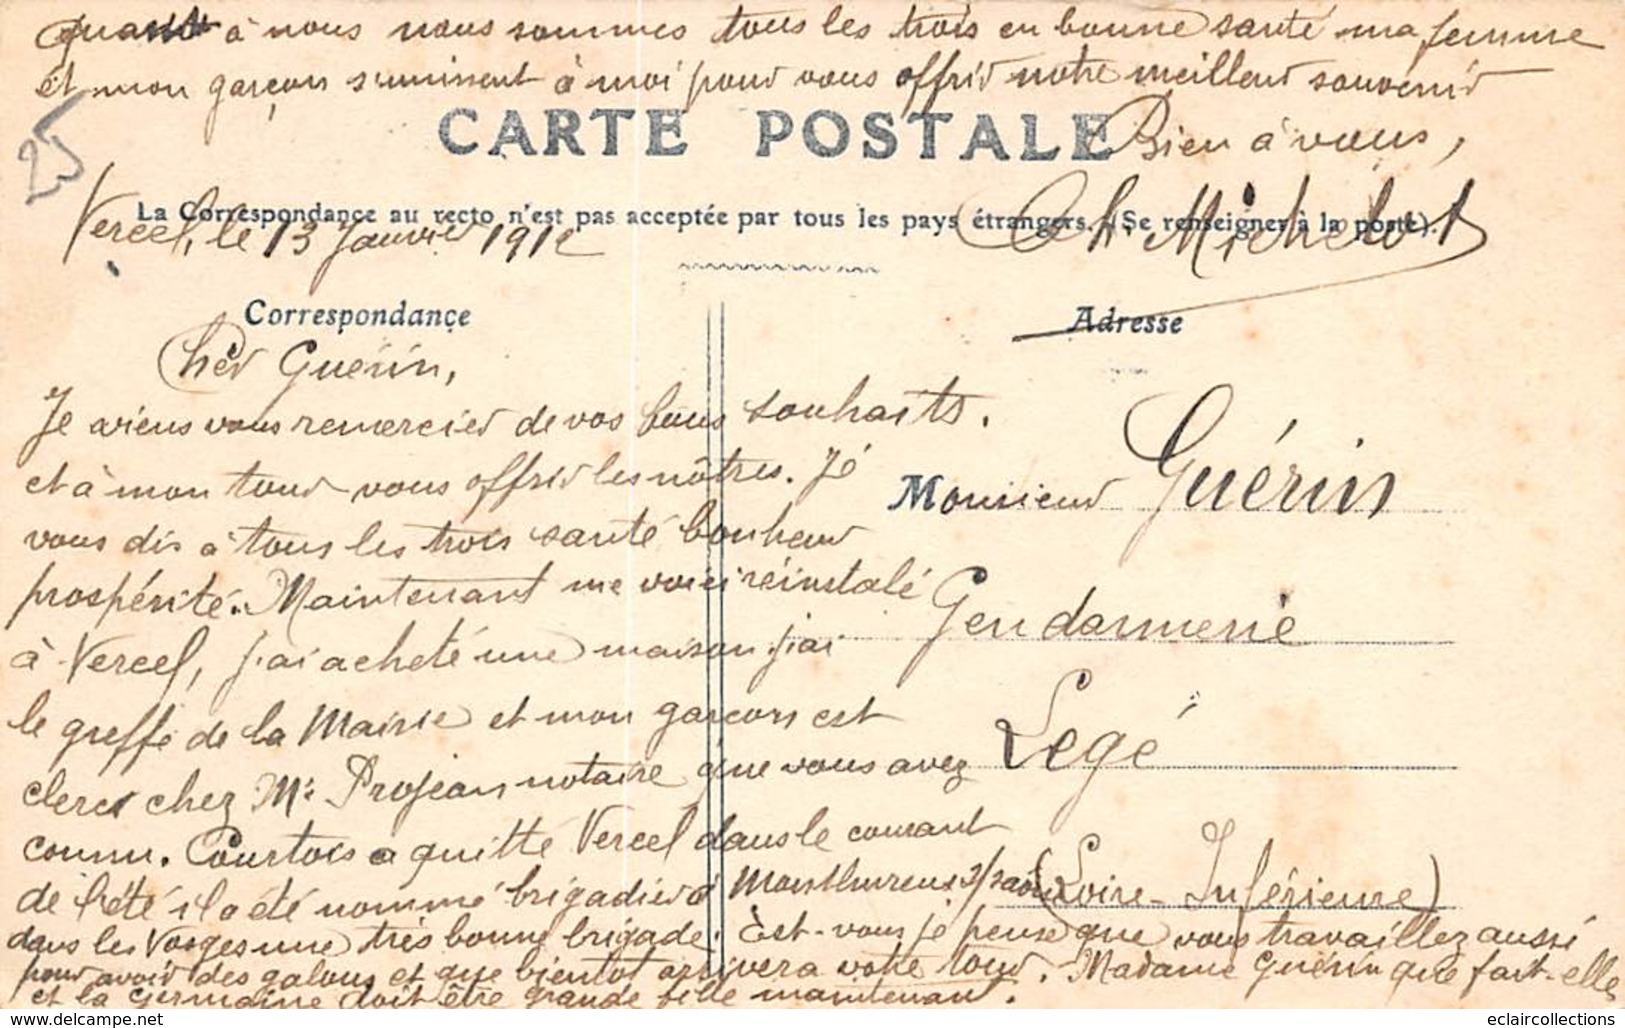 quant à nous nous sommes tous les trois en bonne santé ma femme
et mon garçon s'unissent à moi pour vous offrir notre meilleur souvenir
25
CARTE POSTALE
Bien à vous,
La Correspondance au recto n'est pas acceptée par tous les pays étrangers. (Se renseigner à la poste).
Ch. Michelot
Vercel, le 13 Janvier 1912
Correspondance
Adresse
Cher Guérin,
Je viens vous remercier de vos bons souhaits.
et à mon tour vous offrir les nôtres. Je
vous dis à tous les trois santé bonheur
prospérité. Maintenant me voici réinstalé
à Vercel, j'ai acheté une maison j'ai
le greffe de la Mairie et mon garçon est
clerc chez Me Projean notaire que vous avez
connu. Courtois a quitté Vercel dans le courant
de l'été il a été nommé brigadier à Monthureux s/Saône
dans les Vosges une très bonne brigade. Est-vous je pense que vous travaillez aussi
pour avoir des galons et que bientôt arrivera votre tour. Madame Guérin que fait-elle
et la Germaine doit être grande fille maintenant.
Monsieur Guérin
Gendarmerie
Legé
(Loire-Inférieure)
https://www.delcampe.net
eclaircollections